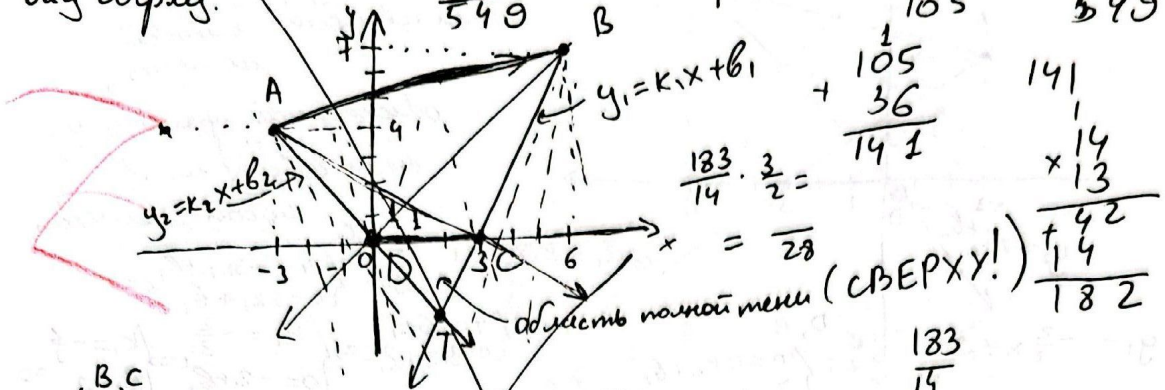 549
105
549
y
7
B
A
4
y₁=k₁x+b₁
y₂=k₂x+b₂
1
-3
-1
0
D
3
C
6
x
T
область полной тени (СВЕРХУ!)
183/14 · 3/2 =
= /28
1
105
+ 36
141
141
1
14
× 13
42
+ 14
182
183
14
B,C